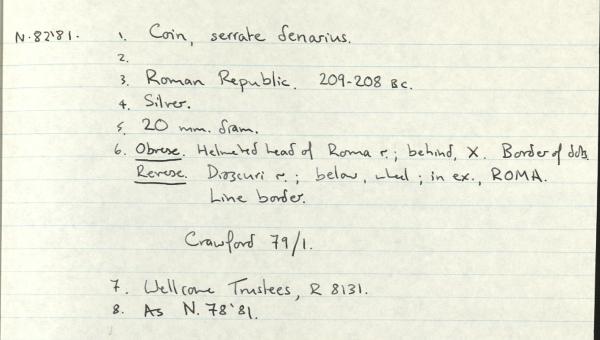 N.82'81. 1. Coin, serrate denarius.
2.
3. Roman Republic. 209-208 BC.
4. Silver.
5. 20 mm. diam.
6. Obverse. Helmeted head of Roma r.; behind, X. Border of dots.
Reverse. Dioscuri r.; below, wheel; in ex., ROMA.
Line border.
Crawford 79/1.
7. Wellcome Trustees, R 8131.
8. As N. 78'81.